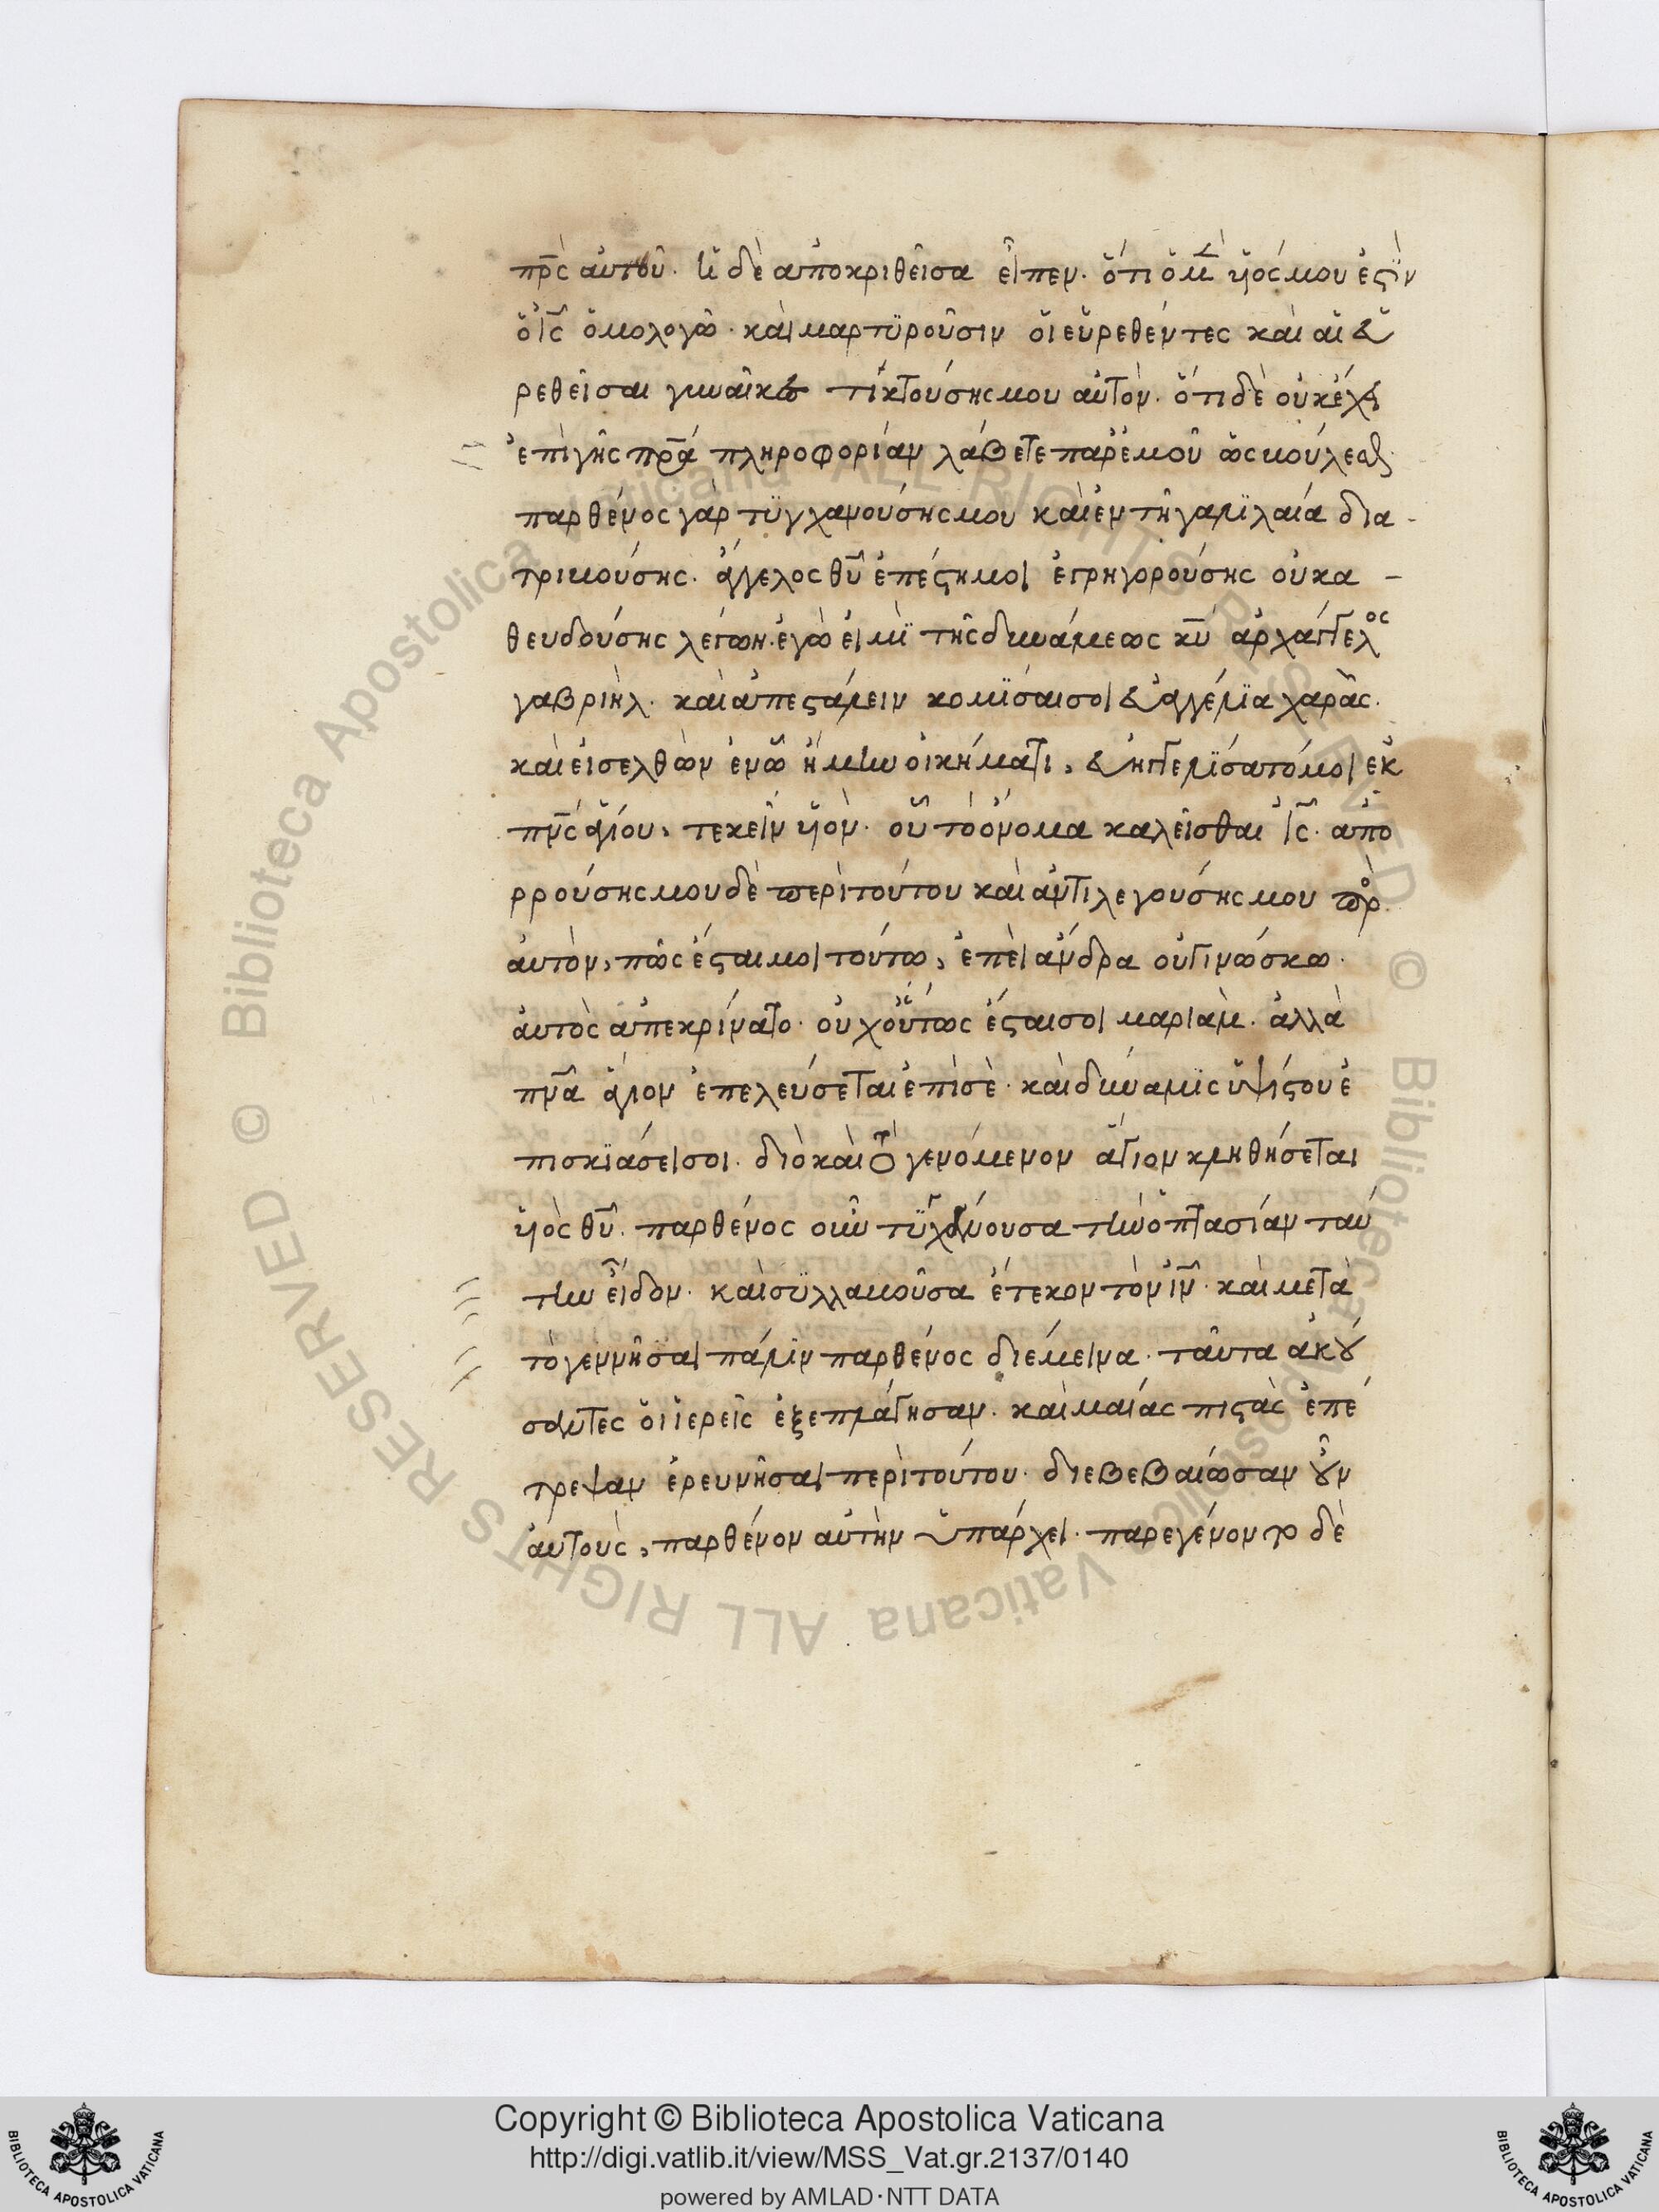 πρ̅ς αὐτοῦ. ἡ δὲ ἀποκριθεῖσα εἶπεν. ὅτι ὁ μὲν ὑός μου ἐστὶν
ὁ ι̅ς ὁμολογῶ. καὶ μαρτϋροῦσιν οἱ εὑρεθέντες καὶ αἱ εὑ
ρεθεῖσαι γυναῖκες τικτούσης μου αὐτόν. ὅτι δὲ οὐκ ἔχει
ἐπὶ γῆς πρ̅α πληροφορίαν λάβετε παρ' ἐμοῦ ὡς βούλεσθε.
παρθένος γὰρ τϋγχανούσης μου καὶ ἐν τῆ γαλϊλαία δια-
τριβούσης. ἄγγελος θ̅υ ἐπέστη μοι ἐγρηγορούσης οὐ κα-
θευδούσης λέγων. ἐγώ εἰμϊ τῆς δυνάμεως κ̅υ ἀρχάγγελος
γαβριήλ. καὶ ἀπεστάλειν κομϊσαί σοι εὐαγγέλϊα χαρᾶς.
καὶ εἰσελθὼν ἐν ὧ ἤμην οἰκήματι, εὐηγγελϊσατό μοι ἐκ
πν̅ς ἁγίου, τεκεῖν ὑόν. οὗ τὸ ὄνομα καλεῖσθαι ι̅ς. ἀπο
ρρούσης μου δὲ περὶ τούτου καὶ ἀντιλεγούσης μου πρὸς
αὐτόν, πῶς ἔσται μοι τούτω, ἐπεὶ ἄνδρα οὐ γινώσκω.
αὐτὸς ἀπεκρίνατο. οὐχ οὕτως ἔσται σοι μαριάμ. ἀλλὰ
πν̅α ἅγιον ἐπελεύσεται ἐπὶ σέ. καὶ δύναμϊς ὑψίστου ἐ
πισκϊάσει σοι. διὸ καὶ τὸ γενόμενον ἅγιον κληθήσεται
ὑὸς θ̅υ. παρθένος οὖν τϋχάνουσα τὴν ὀπτασίαν ταύ
την εἶδον. καὶ σϋλλαβοῦσα ἔτεκον τὸν ι̅ν. καὶ μετὰ
τὸ γεννῆσαι πάλϊν παρθένος διέμεινα. ταῦτα ἀκού
σαντες οἱ ἱερεῖς ἐξεπλάγησαν. καὶ μαίας πιστὰς ἐπέ
τρεψαν ἐρευνῆσαι περὶ τούτου. διεβεβαιώσαν οὖν
αὐτούς, παρθένον αὐτὴν ὑπάρχει. παρεγένοντο δὲ
Copyright © Biblioteca Apostolica Vaticana
http://digi.vatlib.it/view/MSS_Vat.gr.2137/0140
powered by AMLAD·NTT DATA